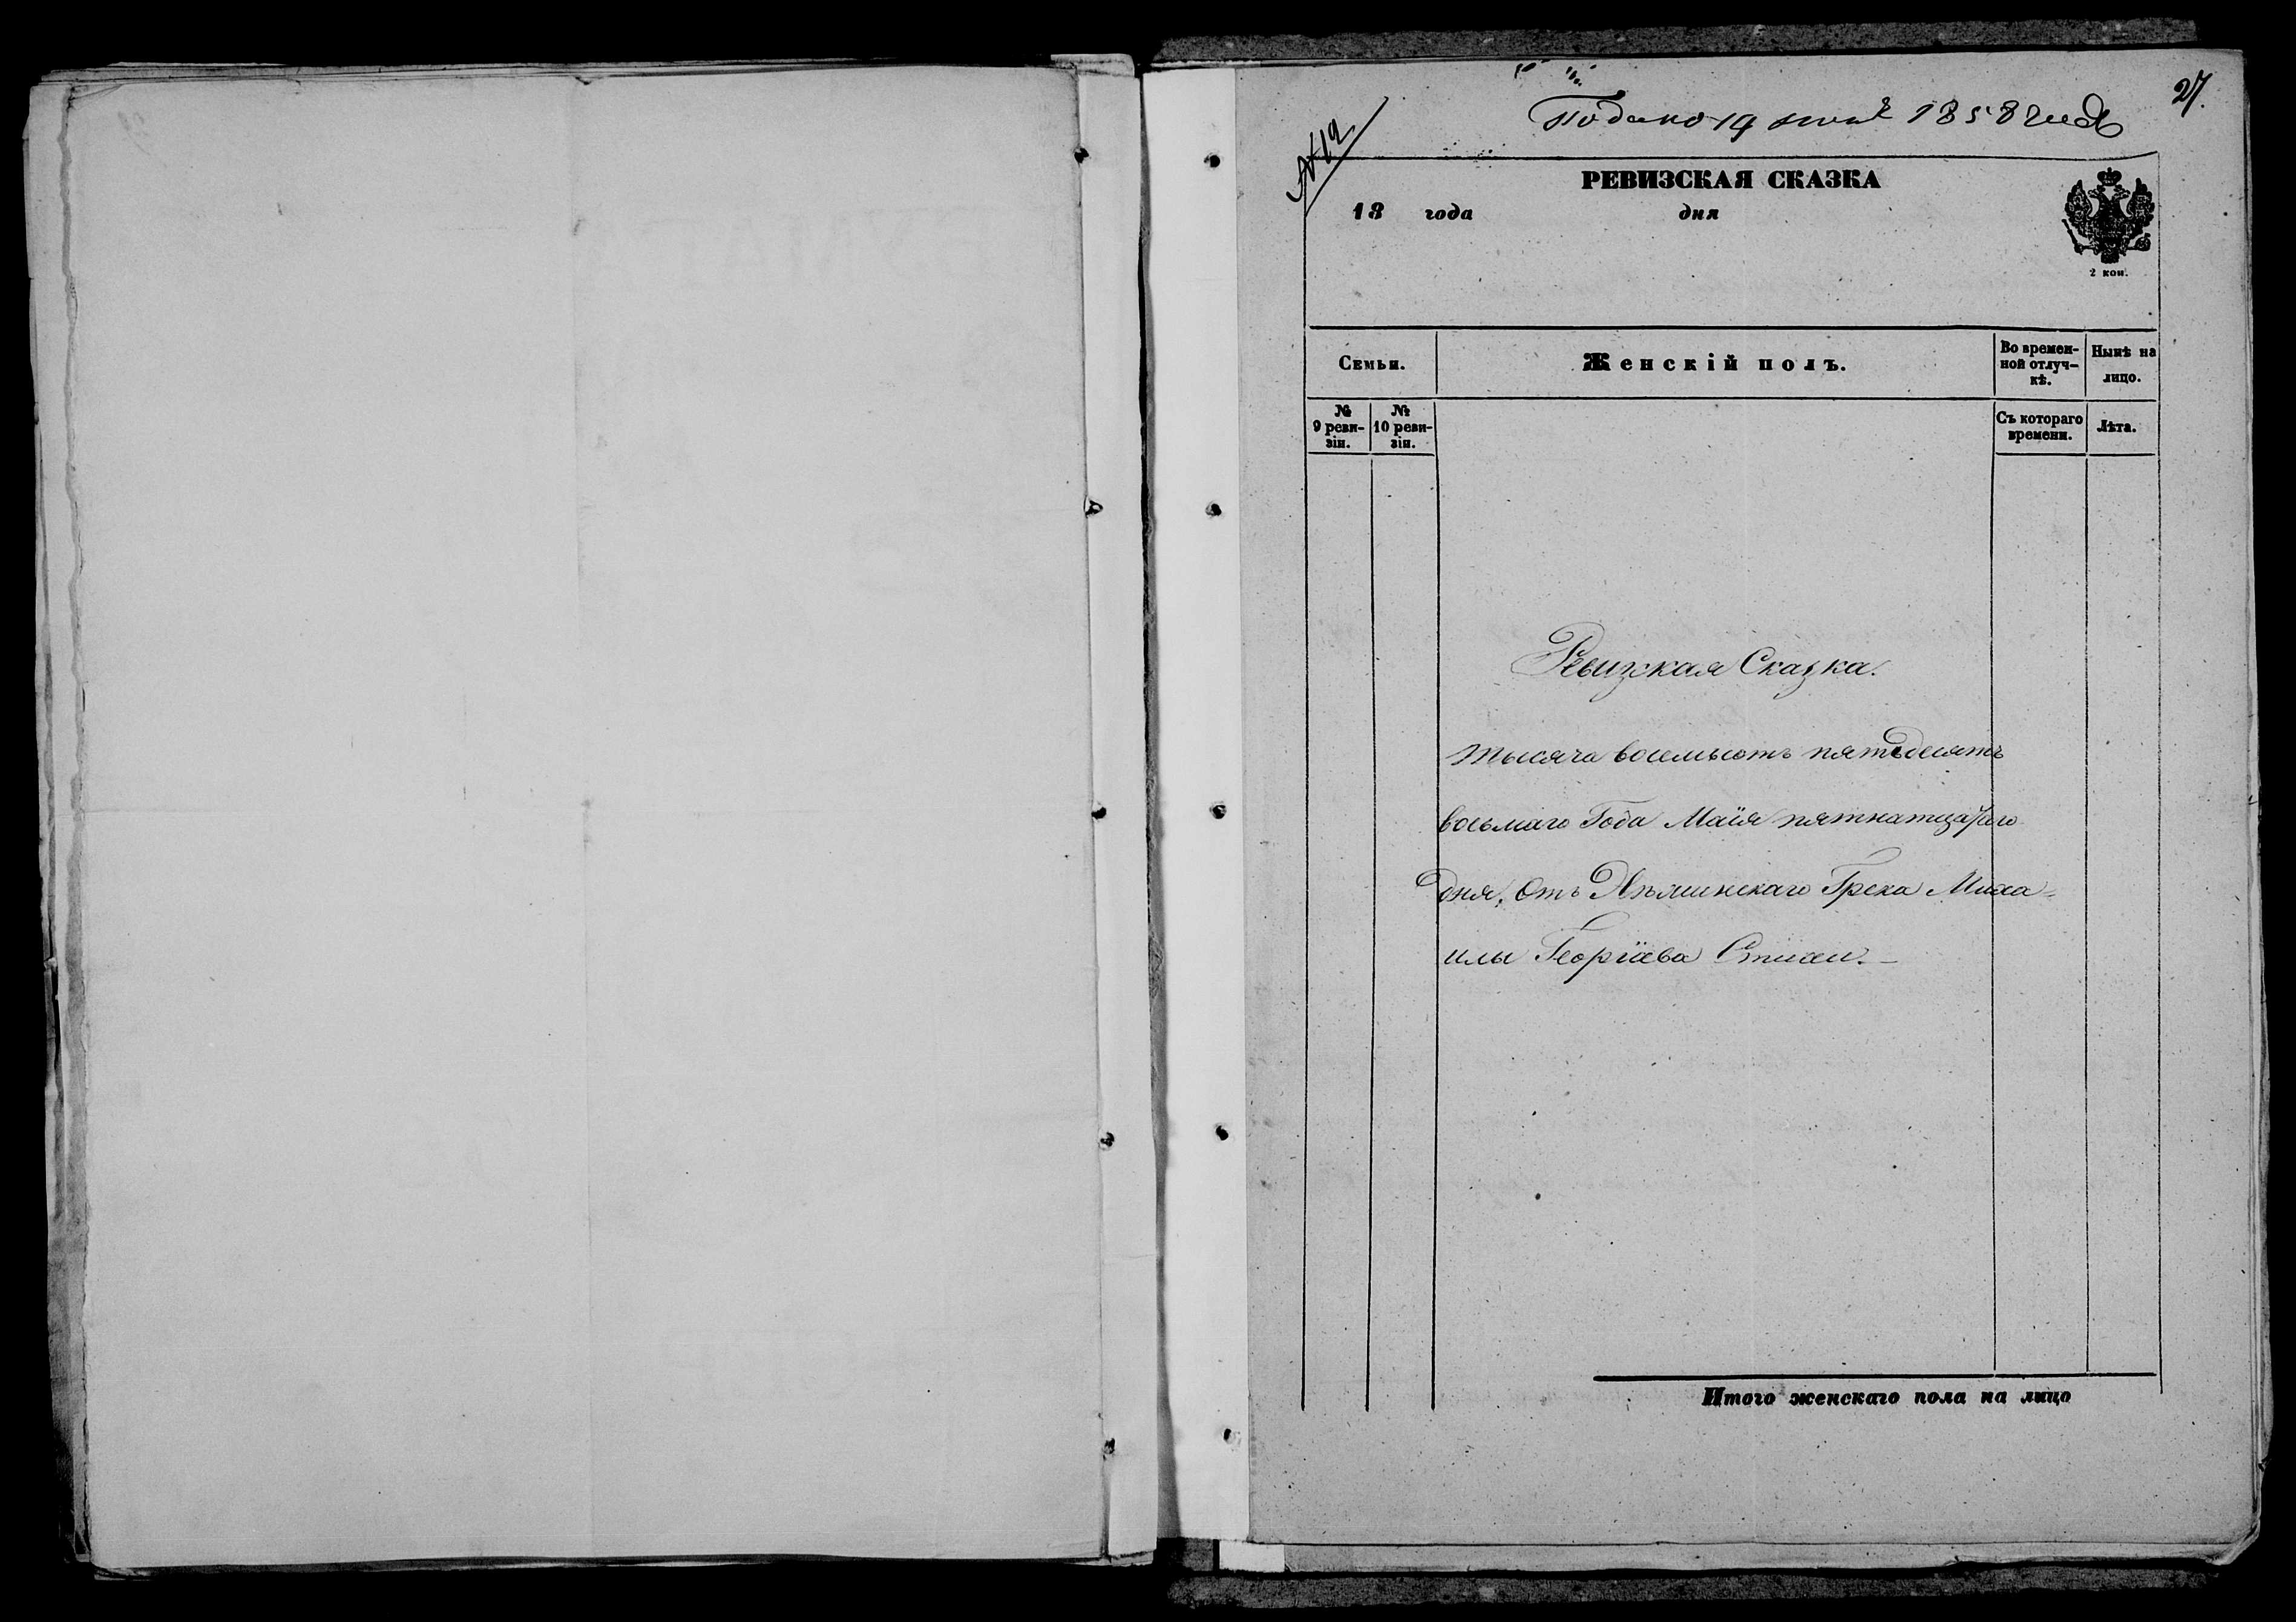 27.
Подано 19 июня 1858 года
№ 12
РЕВИЗСКАЯ СКАЗКА
18 года дня
2 коп.
Семьи. Женскій полъ. Во времен-ной отлуч-кѣ. Нынѣ на лицо.
№ 9 реви-зіи. № 10 реви-зіи. Съ котораго времени. Лѣта.
Ревизкая Сказка.
тысяча восемьсотъ пятьдесятъ
восьмаго Года Маія пятнатцатаго
дня, Отъ Грека Миха-
илы Георгіева
Итого женскаго пола на лицо